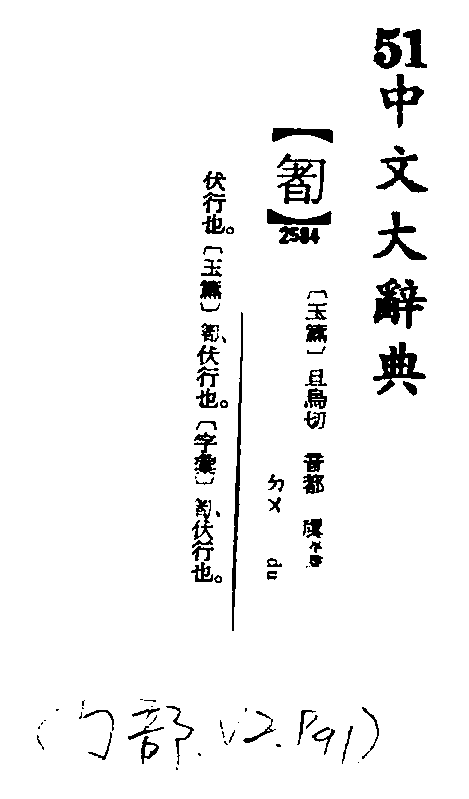 51中文大辭典
【】
2584
〔玉篇〕旦烏切 音都 虞平聲
ㄉㄨ du
伏行也。〔玉篇〕、伏行也。〔字彙〕、伏行也。
(勹部. V2. P91)